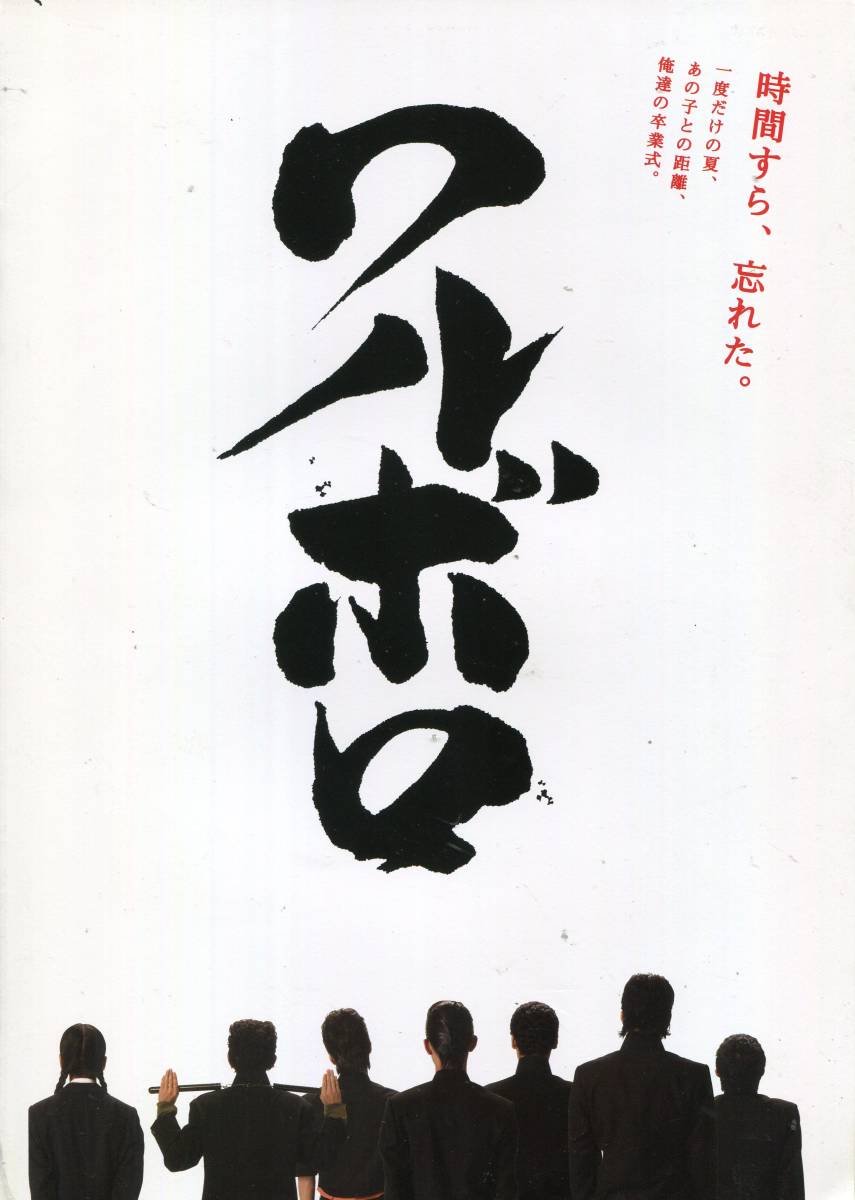 時間すら、忘れた。
一度だけの夏、
あの子との距離、
俺達の卒業式。
ワルボロ